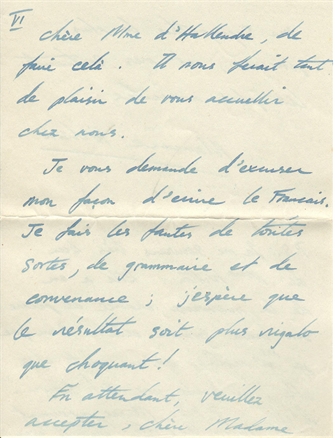 VI
chère Mme d'Hallendre, de
faire celà. Il nous ferait tant
de plaisir de vous accueillir
chez nous.
Je vous demande d'excuser
mon façon d'ecrire le Francais.
Je fais les fautes de toutes
sortes, de grammaire et de
convenance; j'espère que
le résultat soit plus rigolo
que choquant!
En attendant, veuillez
accepter, chère Madame